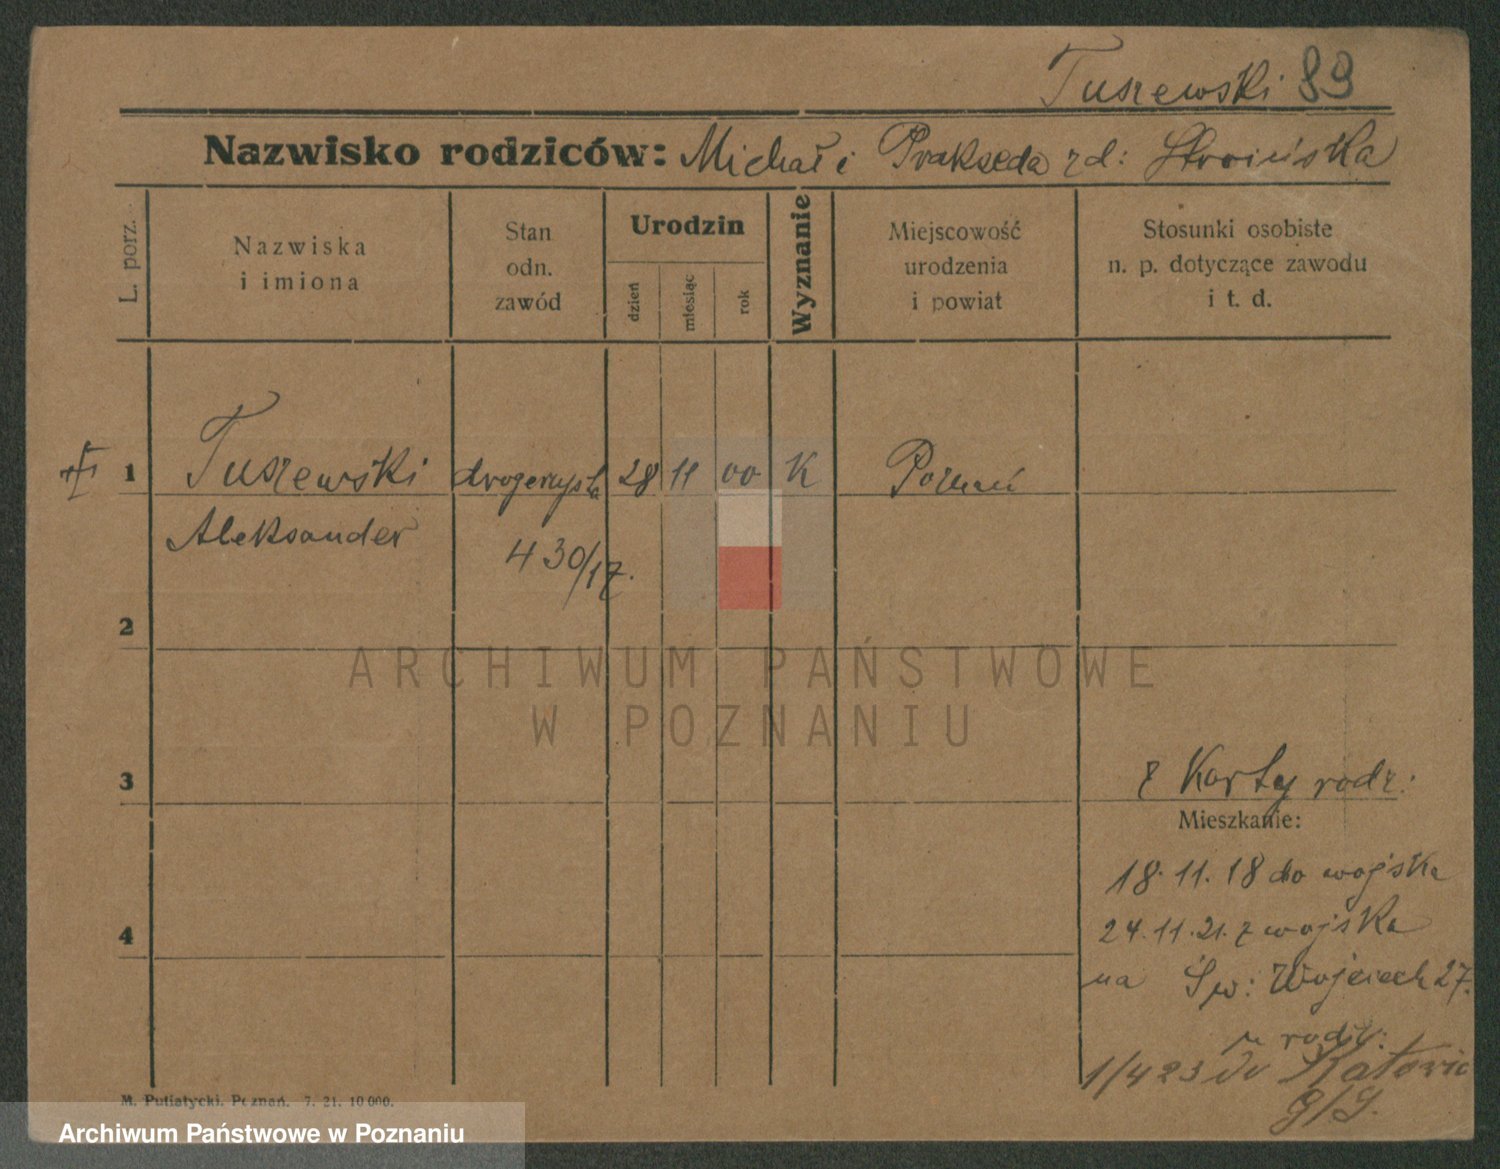 Tuszewski 89
Nazwisko rodziców: Michał i Prakseda zd: Stroińska
L. porz.
Nazwiska
i imiona
Stan
odn.
zawód
Urodzin
dzień
miesiąc
rok
Wyznanie
Miejscowość
urodzenia
i powiat
Stosunki osobiste
n. p. dotyczące zawodu
i t. d.
1 Tuszewski drogerzysta 28 11 00 K Poznań
Aleksander
430/17.
2
ARCHIWUM PAŃSTWOWE
W POZNANIU
3
z Karty rodz.
Mieszkanie:
18.11.18 do wojska
4
24.11.21. z wojska
na Św: Wojciech 27.
rodz:
1/4 23 do Katowic
M. Putiatycki, Poznań. 7. 21. 10 000.
Archiwum Państwowe w Poznaniu